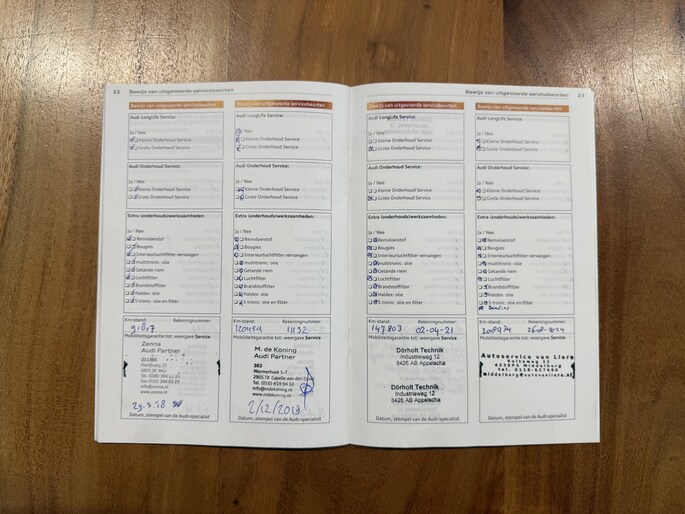 22 Bewijs van uitgevoerde servicebeurten
Bewijs van uitgevoerde servicebeurten
Audi LongLife Service:
Ja / Nee
Kleine Onderhoud Service
Grote Onderhoud Service
Audi Onderhoud Service:
Ja / Nee
Kleine Onderhoud Service
Grote Onderhoud Service
Extra (onderhouds)werkzaamheden:
Ja / Nee
Remvloeistof
Bougies
Interieurluchtfilter vervangen
multitronic: olie
Getande riem
Luchtfilter
Brandstoffilter
Haldex: olie
S tronic: olie en filter
Km-stand: Rekeningnummer:
Mobiliteitsgarantie tot: weergave Service
Zenna
Audi Partner
www.zenna.nl
29.3.18
Datum, stempel van de Audi-specialist
Bewijs van uitgevoerde servicebeurten
Audi LongLife Service:
Ja / Nee
Kleine Onderhoud Service
Grote Onderhoud Service
Audi Onderhoud Service:
Ja / Nee
Kleine Onderhoud Service
Grote Onderhoud Service
Extra (onderhouds)werkzaamheden:
Ja / Nee
Remvloeistof
Bougies
Interieurluchtfilter vervangen
multitronic: olie
Getande riem
Luchtfilter
Brandstoffilter
Haldex: olie
S tronic: olie en filter
Km-stand: Rekeningnummer:
Mobiliteitsgarantie tot: weergave Service
M. de Koning
Audi Partner
383
Wormerhoek 5-7
2905 TX Capelle aan den
Tel. (010) 459 94 50
www.mdekoning.nl
2/12/2019
Datum, stempel van de Audi-specialist
Bewijs van uitgevoerde servicebeurten 23
Bewijs van uitgevoerde servicebeurten
Audi LongLife Service:
Ja / Nee
Kleine Onderhoud Service
Grote Onderhoud Service
Audi Onderhoud Service:
Ja / Nee
Kleine Onderhoud Service
Grote Onderhoud Service
Extra (onderhouds)werkzaamheden:
Ja / Nee
Remvloeistof
Bougies
Interieurluchtfilter vervangen
multitronic: olie
Getande riem
Luchtfilter
Brandstoffilter
Haldex: olie
S tronic: olie en filter
Km-stand: Rekeningnummer:
147.803 02-04-21
Mobiliteitsgarantie tot: weergave Service
Dörholt Technik
Industrieweg 12
8426 AB Appelscha
Dörholt Technik
Industrieweg 12
8426 AB Appelscha
Datum, stempel van de Audi-specialist
Bewijs van uitgevoerde servicebeurten
Audi LongLife Service:
Ja / Nee
Kleine Onderhoud Service
Grote Onderhoud Service
Audi Onderhoud Service:
Ja / Nee
Kleine Onderhoud Service
Grote Onderhoud Service
Extra (onderhouds)werkzaamheden:
Ja / Nee
Remvloeistof
Bougies
Interieurluchtfilter vervangen
multitronic: olie
Getande riem
Luchtfilter
Brandstoffilter
Haldex: olie
S tronic: olie en filter
Km-stand: Rekeningnummer:
Mobiliteitsgarantie tot: weergave Service
Autoservice van Liere
Middelburg
tel. 0118-637468
Datum, stempel van de Audi-specialist